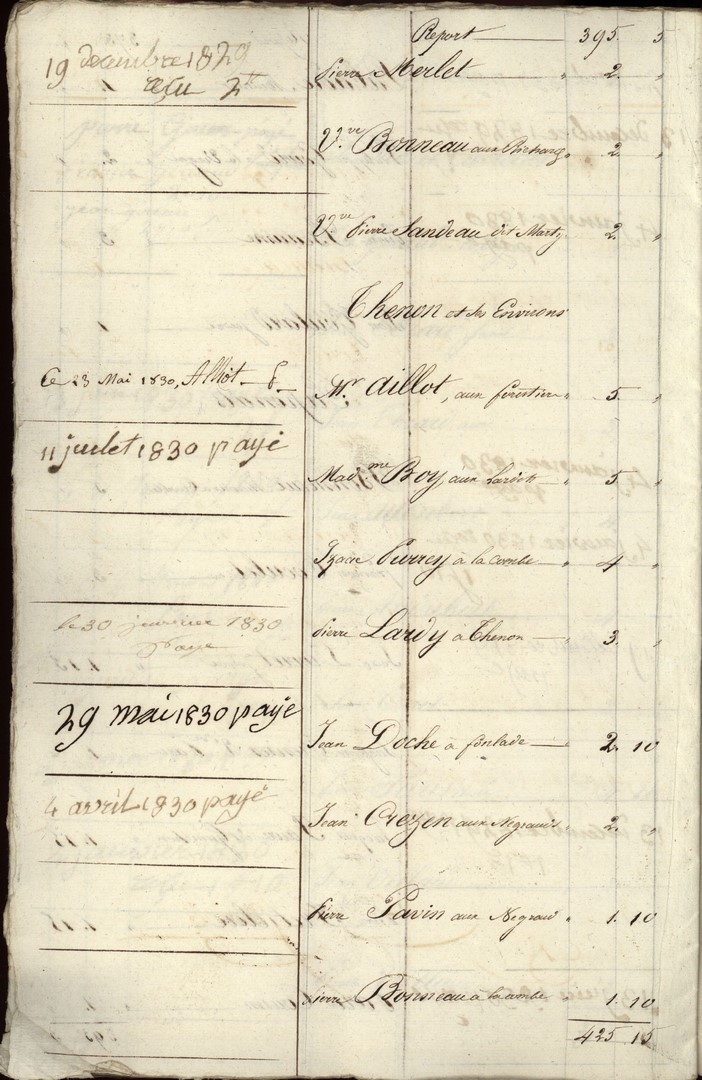 Report 395. 5
19 decembre 1829
reçu 2#
pierre Merlet " 2. "
V.ve Bonneau aux Richards " 2. "
V.ve pierre Landeau dit Marty 2. "
Thenon et ses Environs
Ce 23 Mai 1830, Alliot
Mr. Aillot, aux forêtier " 5. "
11 juilet 1830 payé
Mad.me Boy, aux Lardott " 5 "
Izaac Purrey à la combe " 4 "
le 30 janvier 1830
paye
pierre Lardy à Thenon " 3. "
29 mai 1830 payé
Jean Doche à fonlade 2. 10
4 avril 1830 payé
Jean Crezen aux Negrauds 2. "
pierre Pavin aux Negraud " 1. 10
pierre Bonneau à la combe 1. 10
425 15